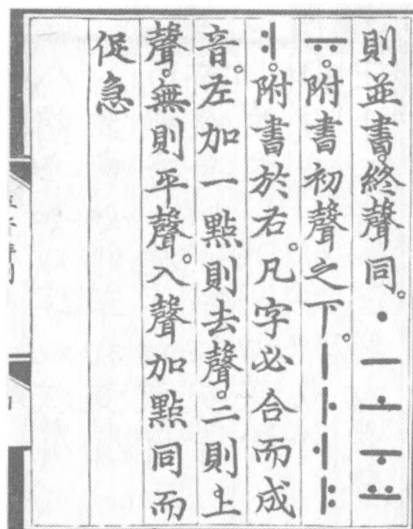 則並書。終聲同。ㆍㅡㅗㅜㅛ
ㅠ。附書初聲之下。ㅣㅏㅓㅑ
ㅕ。附書於右。凡字必合而成
音。左加一點則去聲。二則上
聲。無則平聲。入聲加點同而
促急